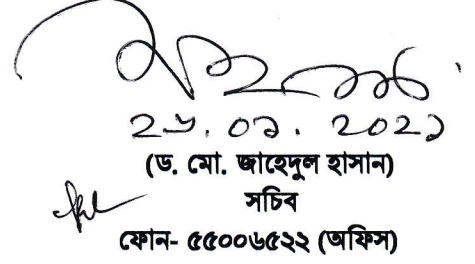 ২৬.০১.২০২১
(ড. মো. জাহেদুল হাসান)
সচিব
ফোন- ৫৫০০৬৫২২ (অফিস)